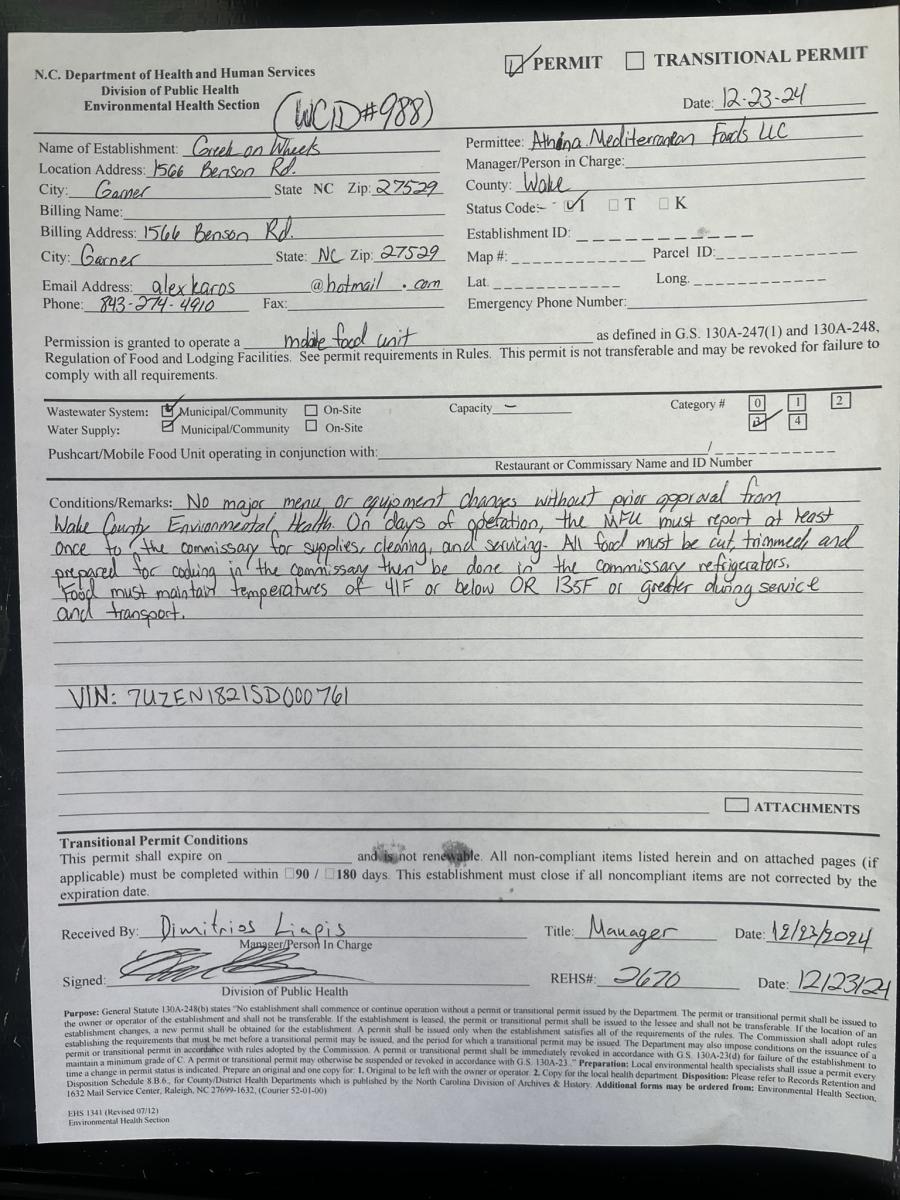 N.C. Department of Health and Human Services
Division of Public Health
Environmental Health Section
(WCID#988)
☑ PERMIT ☐ TRANSITIONAL PERMIT
Date: 12-23-24
Name of Establishment: Greek on Wheels
Location Address: 1566 Benson Rd.
City: Garner State NC Zip: 27529
Billing Name:
Billing Address: 1566 Benson Rd.
City: Garner State: NC Zip: 27529
Email Address: alexkaros @hotmail . com
Phone: 843-274-4910 Fax:
Permittee: Athina Mediterranean Foods LLC
Manager/Person in Charge:
County: Wake
Status Code: ☑ I ☐ T ☐ K
Establishment ID:
Map #: Parcel ID:
Lat. Long.
Emergency Phone Number:
Permission is granted to operate a mobile food unit as defined in G.S. 130A-247(1) and 130A-248,
Regulation of Food and Lodging Facilities. See permit requirements in Rules. This permit is not transferable and may be revoked for failure to
comply with all requirements.
Wastewater System: ☑ Municipal/Community ☐ On-Site Capacity – Category # 0 1 2
Water Supply: ☑ Municipal/Community ☐ On-Site 3 4
Pushcart/Mobile Food Unit operating in conjunction with: /
Restaurant or Commissary Name and ID Number
Conditions/Remarks: No major menu or equipment changes without prior approval from
Wake County Environmental Health. On days of operation, the MFU must report at least
once to the commissary for supplies, cleaning, and servicing. All food must be cut, trimmed, and
prepared for cooking in the commissary then be done in the commissary refrigerators.
Food must maintain temperatures of 41F or below OR 135F or greater during service
and transport.
VIN: 7UZEN1821SD000761
☐ ATTACHMENTS
Transitional Permit Conditions
This permit shall expire on and is not renewable. All non-compliant items listed herein and on attached pages (if
applicable) must be completed within ☐90 / ☐180 days. This establishment must close if all noncompliant items are not corrected by the
expiration date.
Received By: Dimitrios Liapis Title: Manager Date: 12/23/2024
Manager/Person In Charge
Signed: REHS#: 2670 Date: 12/23/24
Division of Public Health
Purpose: General Statute 130A-248(b) states "No establishment shall commence or continue operation without a permit or transitional permit issued by the Department. The permit or transitional permit shall be issued to
the owner or operator of the establishment and shall not be transferable. If the establishment is leased, the permit or transitional permit shall be issued to the lessee and shall not be transferable. If the location of an
establishment changes, a new permit shall be obtained for the establishment. A permit shall be issued only when the establishment satisfies all of the requirements of the rules. The Commission shall adopt rules
establishing the requirements that must be met before a transitional permit may be issued, and the period for which a transitional permit may be issued. The Department may also impose conditions on the issuance of a
permit or transitional permit in accordance with rules adopted by the Commission. A permit or transitional permit shall be immediately revoked in accordance with G.S. 130A-23(d) for failure of the establishment to
maintain a minimum grade of C. A permit or transitional permit may otherwise be suspended or revoked in accordance with G.S. 130A-23." Preparation: Local environmental health specialists shall issue a permit every
time a change in permit status is indicated. Prepare an original and one copy for: 1. Original to be left with the owner or operator. 2. Copy for the local health department. Disposition: Please refer to Records Retention and
Disposition Schedule 8.B.6., for County/District Health Departments which is published by the North Carolina Division of Archives & History. Additional forms may be ordered from: Environmental Health Section,
1632 Mail Service Center, Raleigh, NC 27699-1632, (Courier 52-01-00)
EHS 1341 (Revised 07/12)
Environmental Health Section